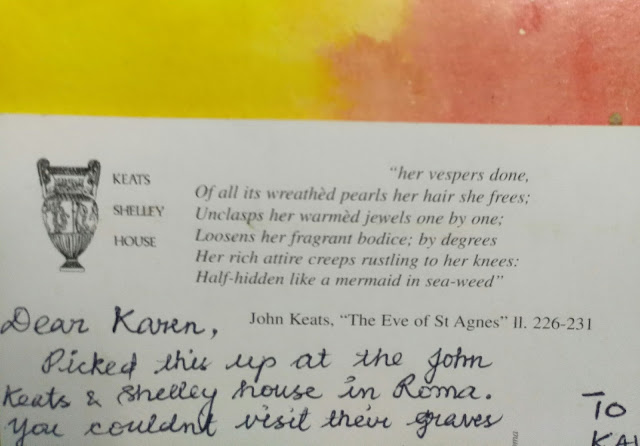 KEATS
SHELLEY
HOUSE
"her vespers done,
Of all its wreathèd pearls her hair she frees;
Unclasps her warmèd jewels one by one;
Loosens her fragrant bodice; by degrees
Her rich attire creeps rustling to her knees:
Half-hidden like a mermaid in sea-weed"
John Keats, "The Eve of St Agnes" ll. 226-231
Dear Karen,
Picked this up at the John
Keats & Shelley house in Roma.
You couldn't visit their graves
TO